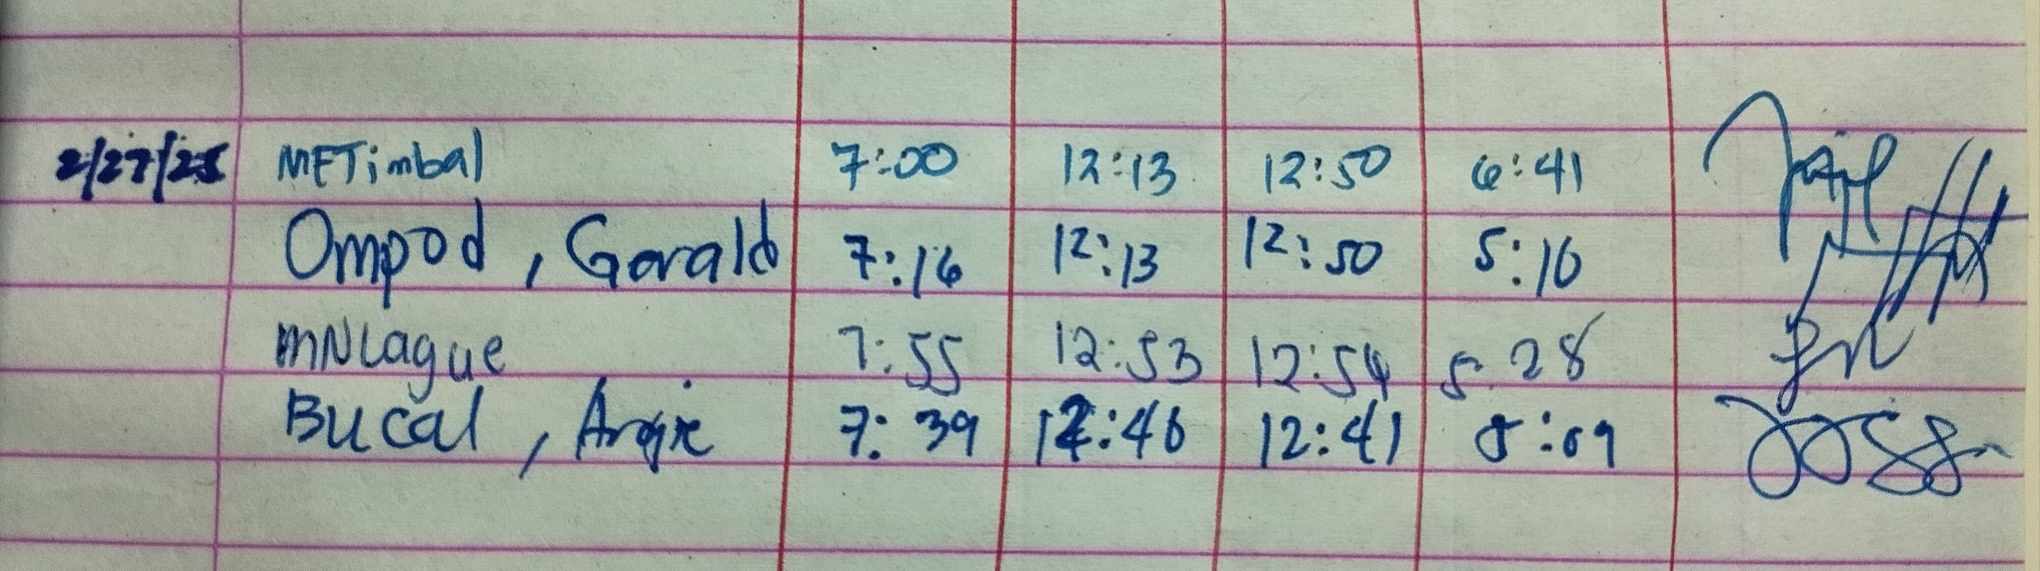 2/27/25 METimbal 7:00 12:13 12:50 6:41
Ompod, Gerald 7:16 12:13 12:50 5:10
MNLague 7:55 12:53 12:54 5:28
Bucal, Argie 7:39 12:40 12:41 5:09